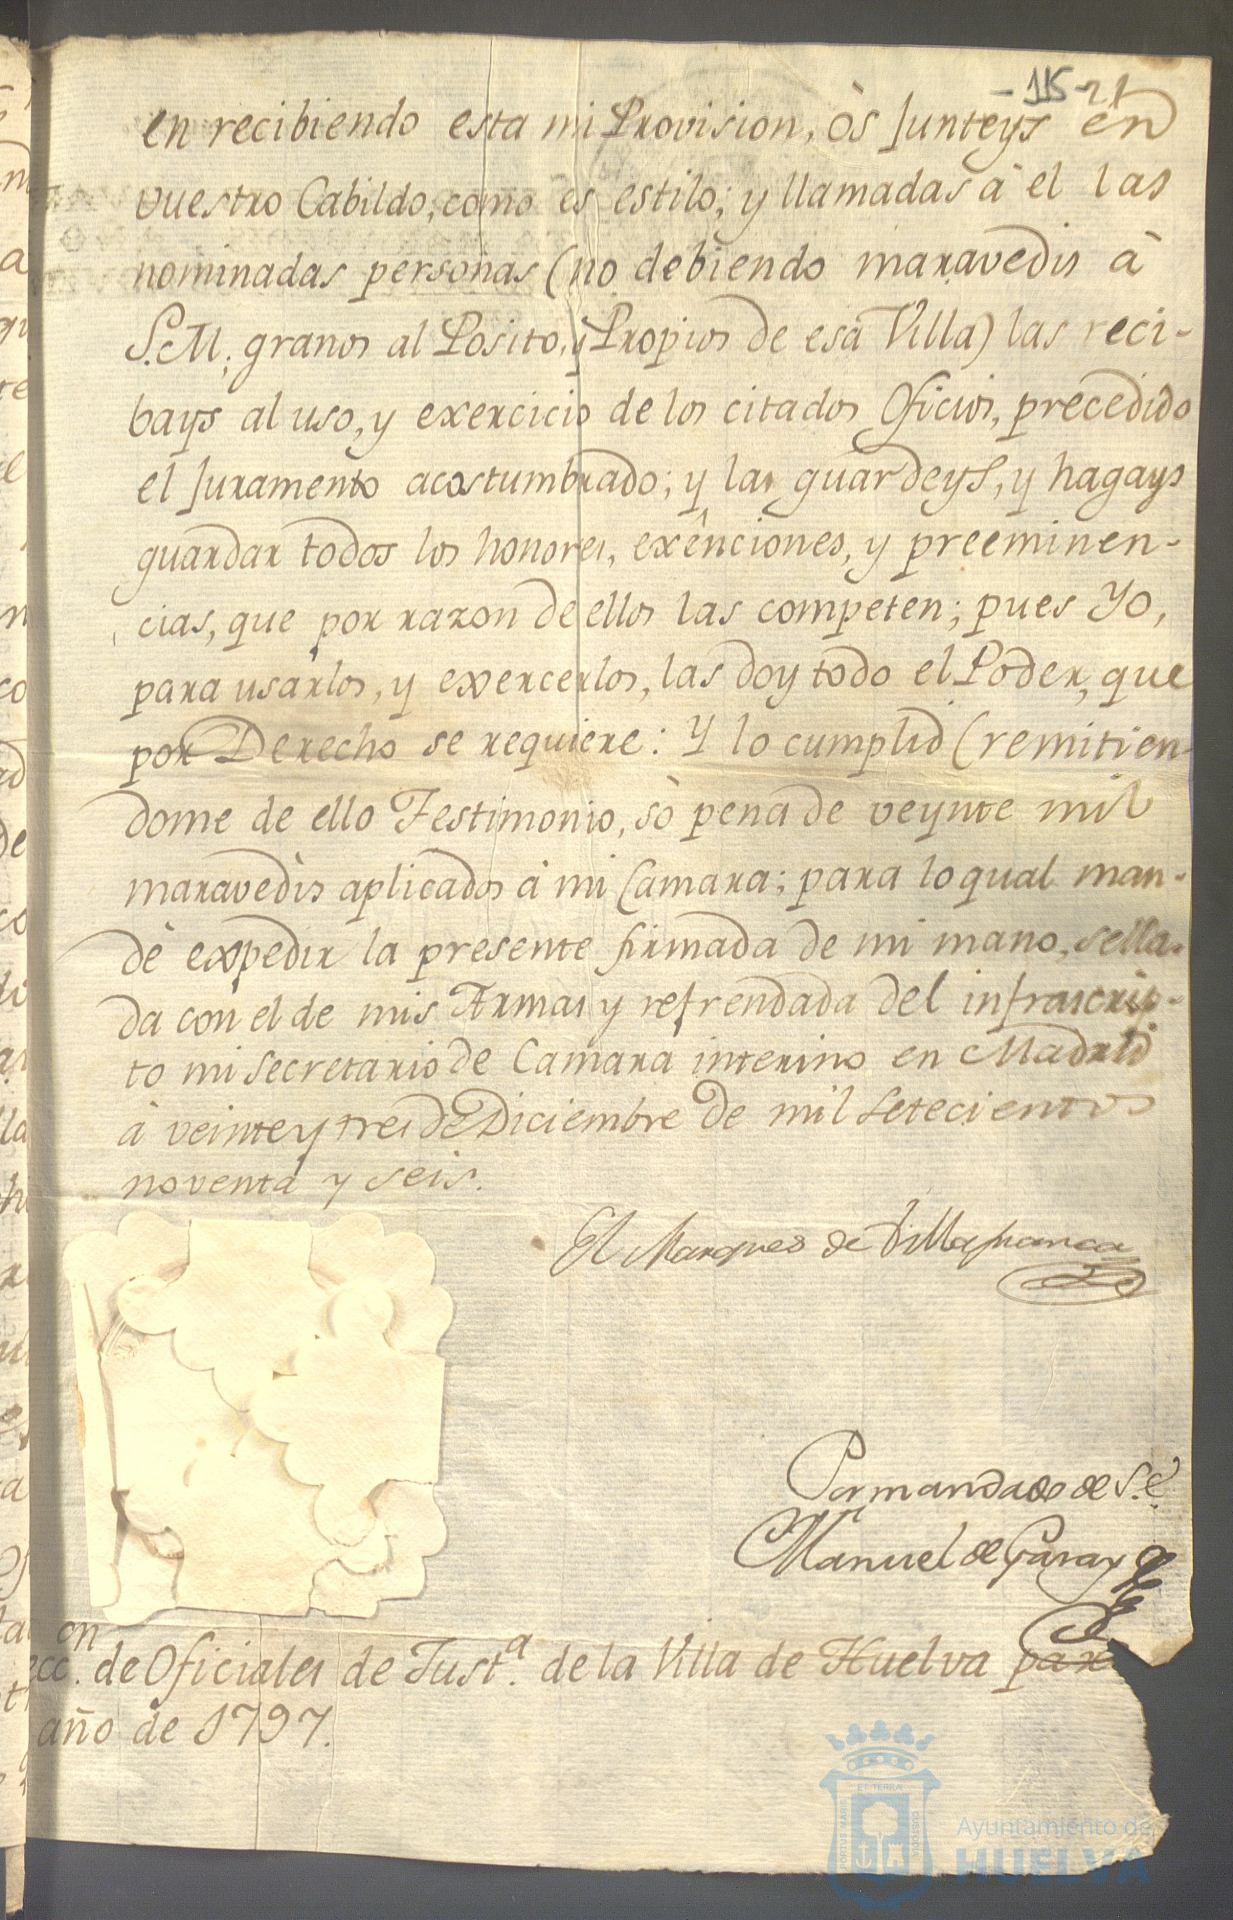 - 115 - 21
en recibiendo esta mi Provision, òs Junteys en
vuestro Cabildo, como es estilo; y llamadas à el las
nominadas personas (no debiendo maravedis à
S.M; granos al Posito, y Propios de esa Villa) las reci-
bays al uso, y exercicio de los citados Oficios, precedido
el Juramento acostumbrado; y las guardeys, y hagays
guardar todos los honores, exênciones, y preeminen-
cias, que por razon de ellos las competen; pues Yo,
para usarlos, y exercerlos, las doy todo el Poder, que
por Derecho se requiere: Y lo cumplid (remitien-
dome de ello Testimonio, sò pena de veynte mil
maravedis aplicados à mi Camara; para lo qual man-
dè expedir la presente firmada de mi mano, sella-
da con el de mis Armas y refrendada del infrascrip-
to mi Secretario de Camara interino en Madrid
à veinte y tres de Diciembre de mil Setecientos
noventa y seis.
El Marques de Villafranca
Por mandado de S.E.
Manuel de Garay
ecc.on de Oficiales de Just.a de la Villa de Huelva par
año de 1797.
ET TERRAE
PORTUS MARIS
CUSTODIA
Ayuntamiento de
HUELVA